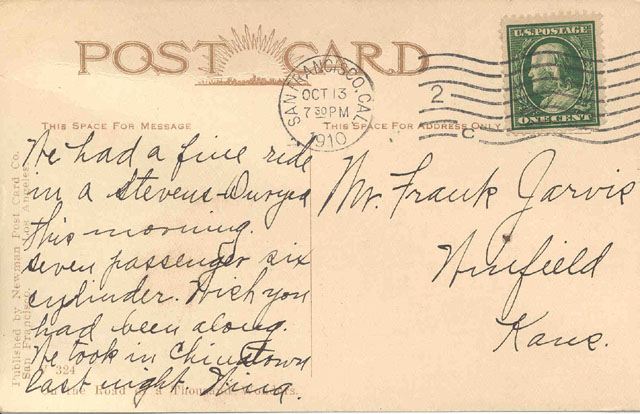 POST CARD
SAN FRANCISCO, CAL.
OCT 13
7 30 PM
1910
2
C
U.S. POSTAGE
ONE CENT
THIS SPACE FOR MESSAGE
THIS SPACE FOR ADDRESS ONLY
We had a fine ride
in a Stevens-Duryea
this morning.
Seven passenger six
cylinder. Wish you
had been along.
We took in Chinatown
last night. Nina.
Mr. Frank Jarvis
Winfield
Kans.
Published by Newman Post Card Co.
San Francisco. Los Angeles.
324
On the Road of a Thousand Wonders.